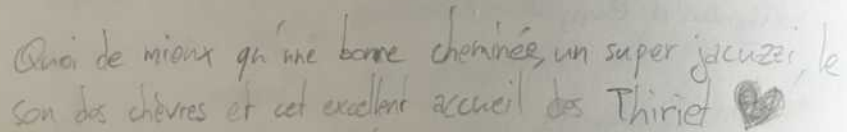 Quoi de mieux qu'une bonne cheminée, un super jacuzzi, le
son des chèvres et cet excellent accueil des Thiriet